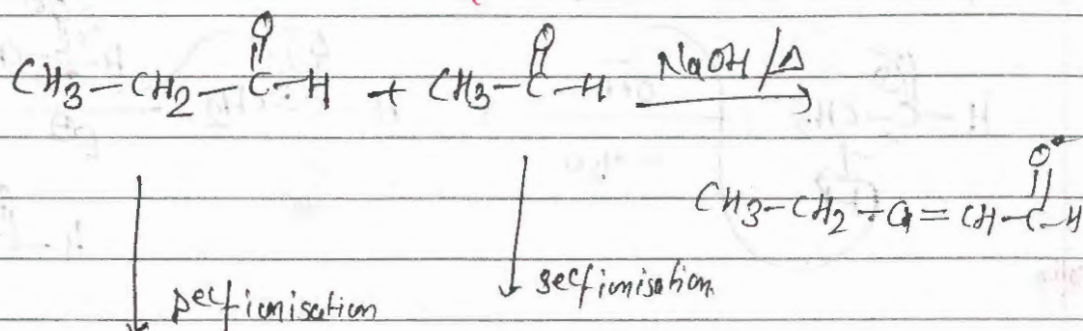 CH3-CH2-C(=O)-H + CH3-C(=O)-H NaOH/Δ →
CH3-CH2-CH=CH-C(=O)-H
selfionisation selfionisation